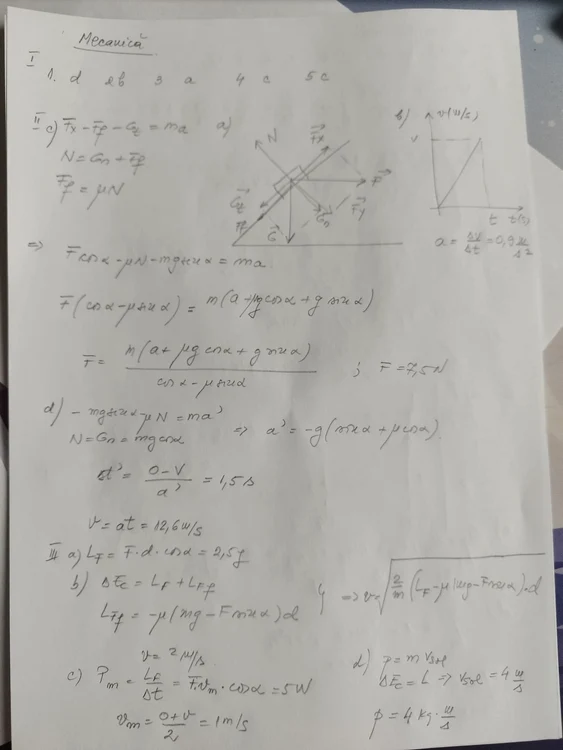 Mecanică
I
1. d 2b 3 a 4 c 5 c
II c) Fx - Ff - Gt = ma
N = Gn + Fy
Ff = μN
a)
N
Fx
F
Fy
Gn
G
Gt
Ff
b) v(m/s)
v
t t(s)
a = Δv/Δt = 0,9 m/s²
=> F cosα - μN - mg sinα = ma
F(cosα - μ sinα) = m(a + μg cosα + g sinα)
F = m(a + μg cosα + g sinα) / cosα - μ sinα ; F = 7,5N
d) - mg sinα - μN = ma'
N = Gn = mg cosα => a' = -g(sinα + μcosα)
Δt' = 0 - v / a' = 1,5 s
v = at = 12,6 m/s
III a) LF = F · d · cosα = 2,5 J
b) ΔEc = LF + LFf
LFf = -μ(mg - F sinα)d
=> v = √ 2/m (LF - μ(mg - F sinα)·d
v = 2 m/s
c) Pm = LF/Δt = F·vm · cosα = 5W
vm = 0+v / 2 = 1 m/s
d) p = m vsol
ΔEc = L => vsol = 4 m/s
p = 4 kg · m/s